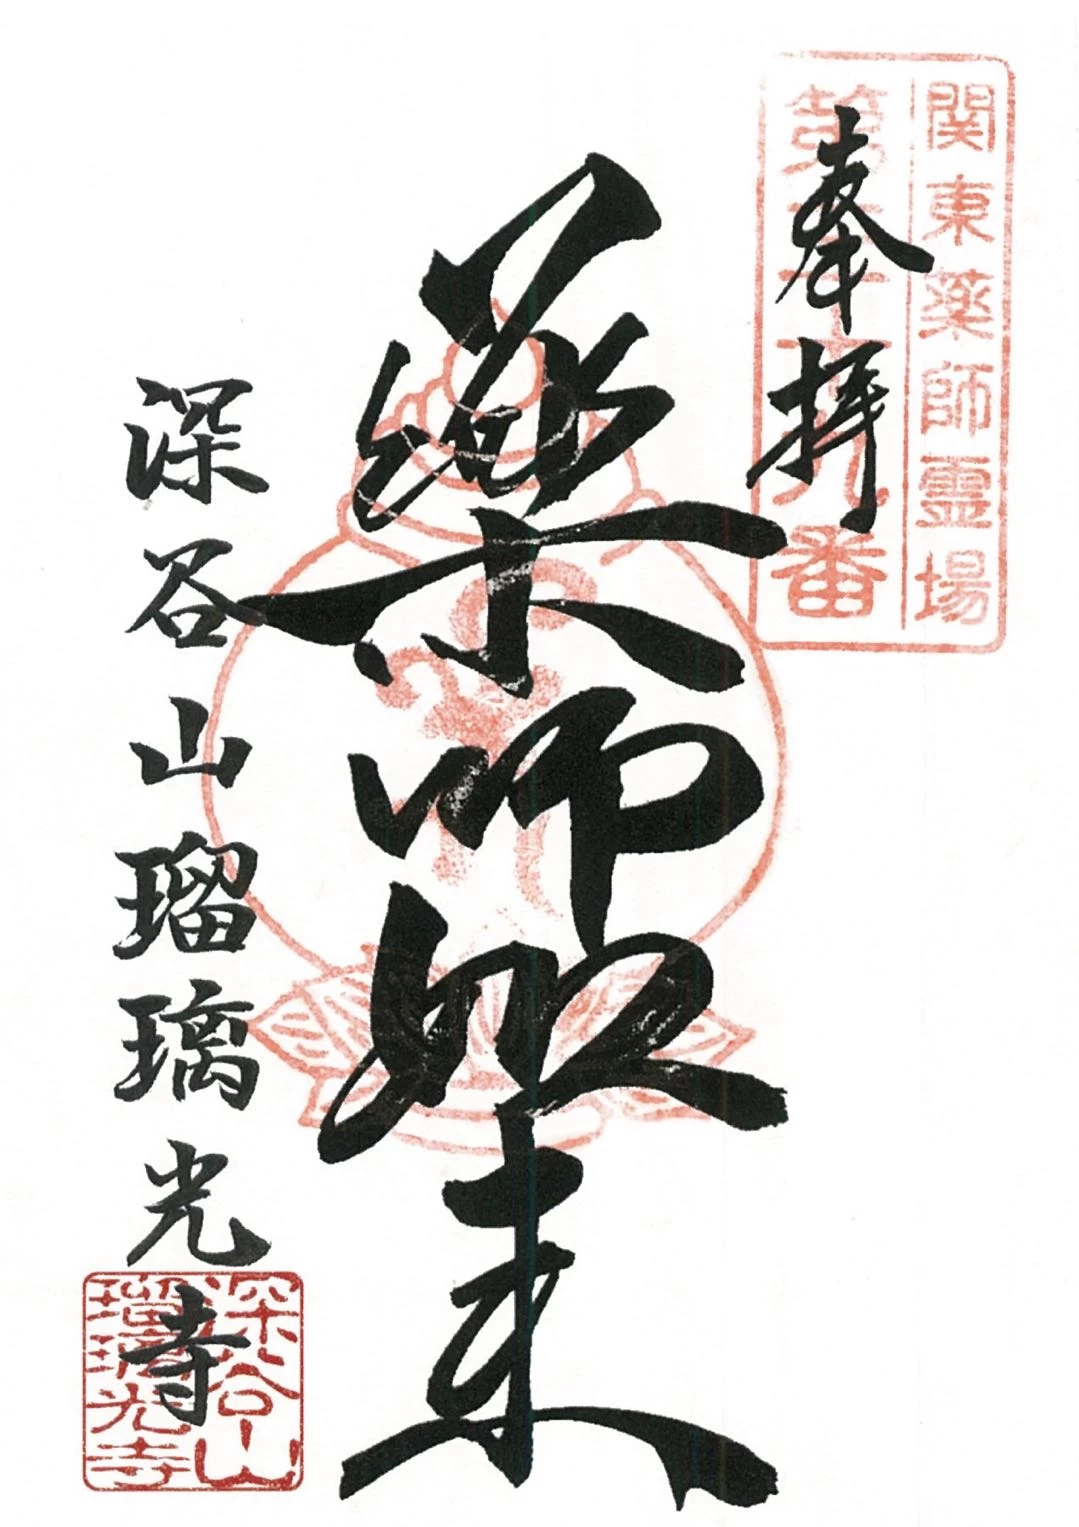 関東薬師霊場
第三十九番
奉拝
薬師如来
深谷山瑠璃光寺
深谷山
瑠璃光寺